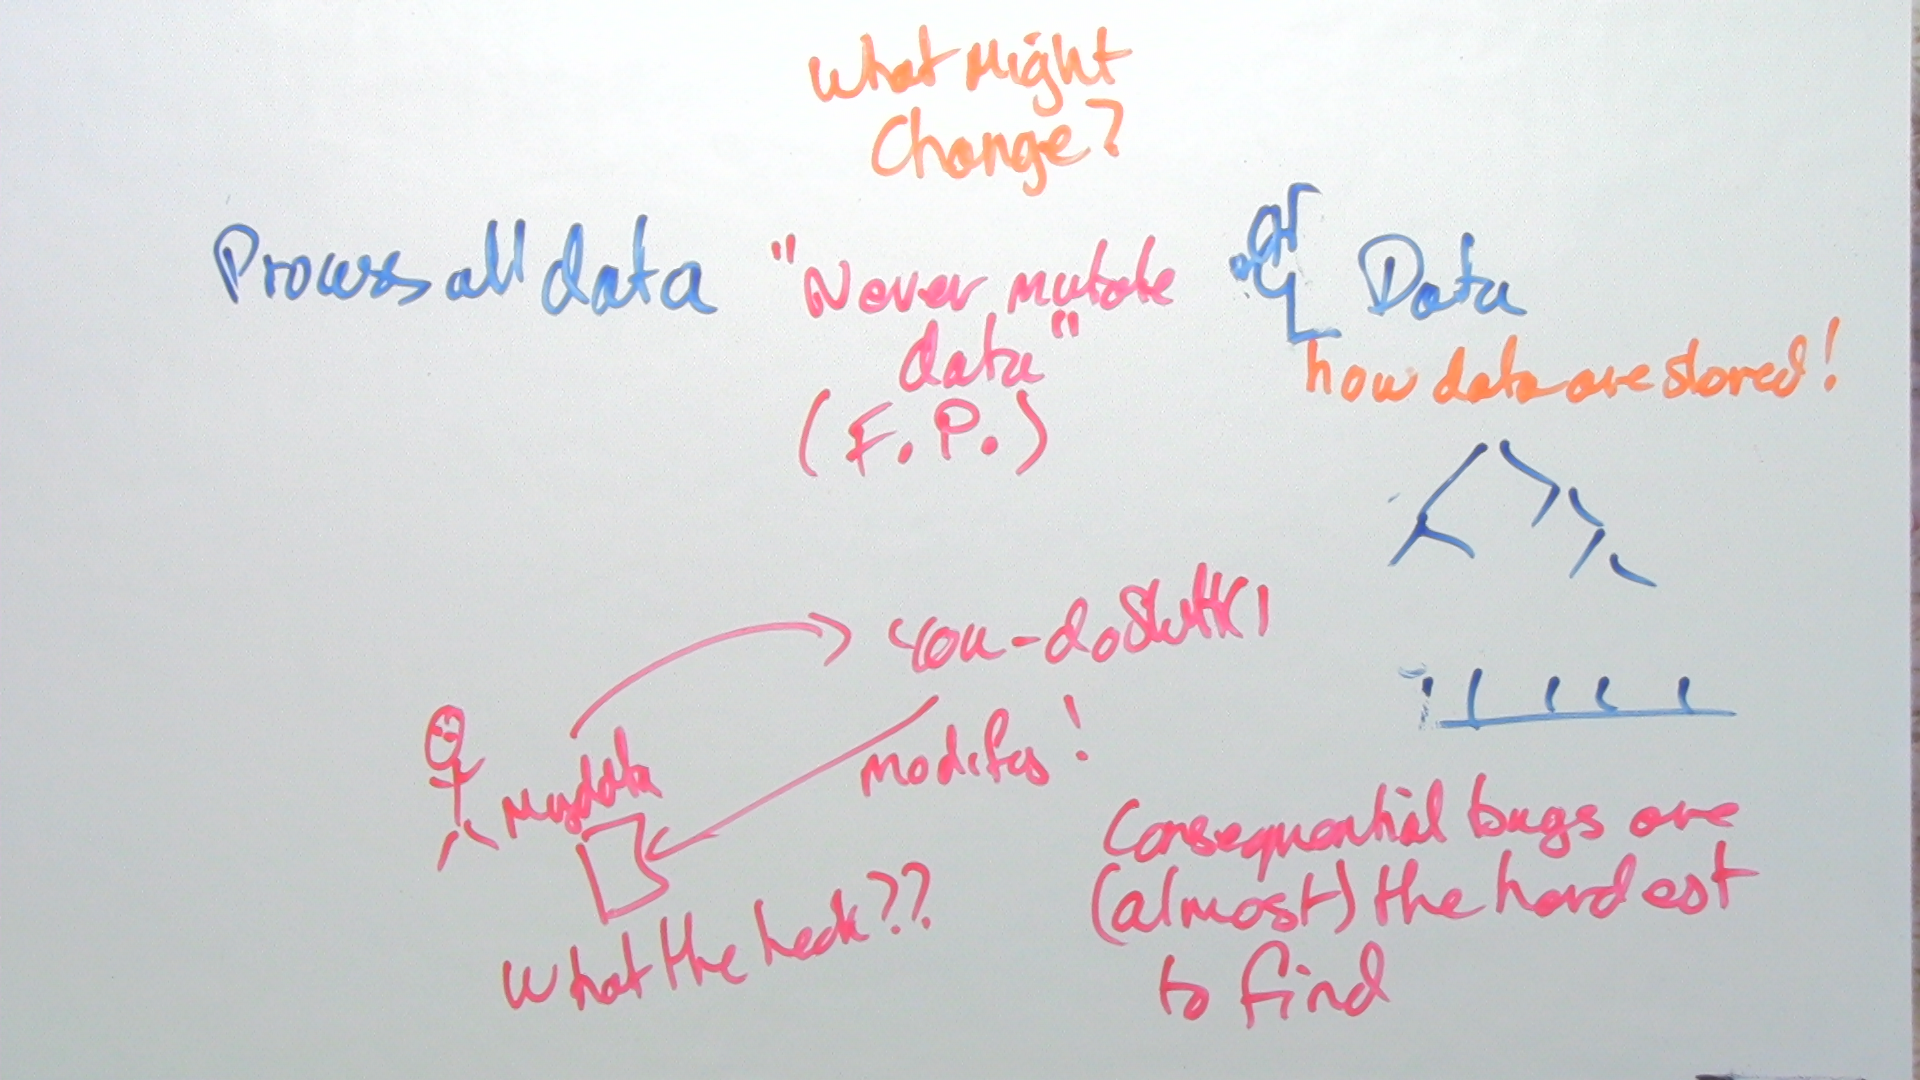 What Might
Change?
Process all data
"Never mutate
data"
(F.P.)
Data
how data are stored!
You-do
My data
modifies!
What the heck??
Consequential bugs are
(almost) the hardest
to find